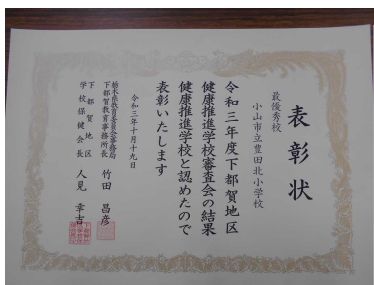 表彰状
最優秀校
小山市立豊田北小学校
令和三年度下都賀地区
健康推進学校審査会の結果
健康推進学校と認めたので
表彰いたします
令和三年十月十九日
栃木県教育委員会事務局
下都賀教育事務所長 竹田 昌彦
下都賀地区
学校保健会長 人見 幸吉